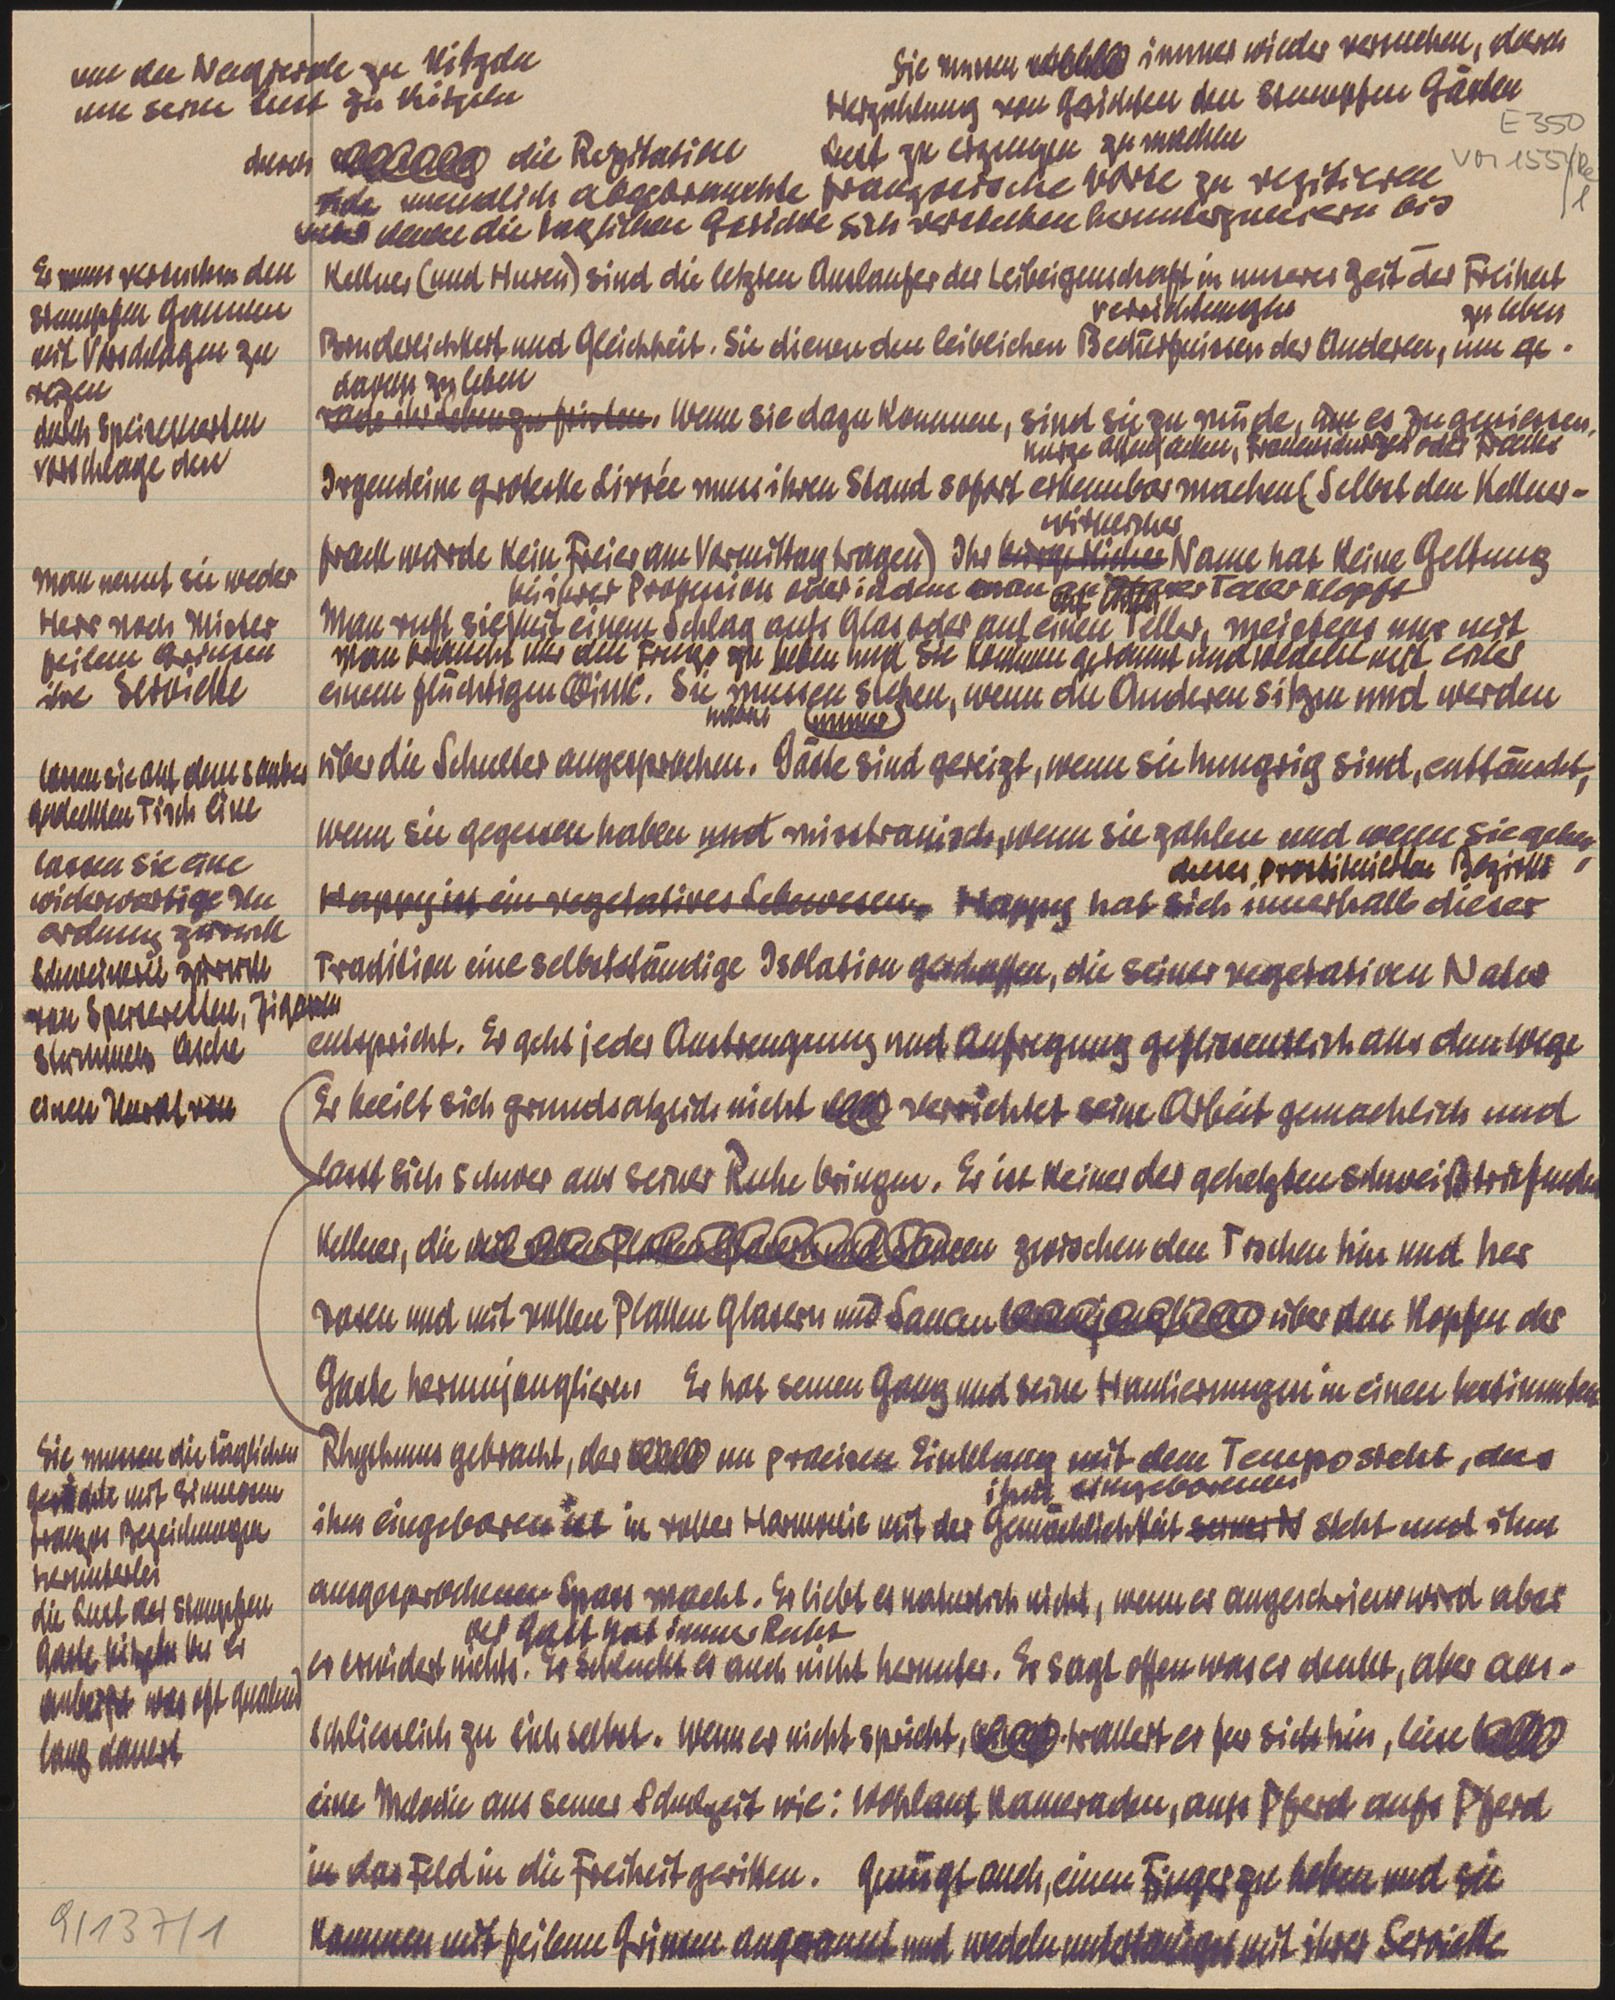 um die Neugierde zu kitzeln
um seine Lust zu kitzeln
Sie müssen immer wieder versuchen, durch
Herzählung von Gerichten den stumpfen Gästen
Lust zu erzeugen zu machen
durch die Rezitation
unendlich abgebrauchte französische Worte zu rezitieren
denen die täglichen Gerichte sich verstecken herunterzuleiern bis
E 350
Vor 155
1
Er muss versuchen den
stumpfen Gaumen
mit Vorschlägen zu
reizen
durch Speisekarten
vorschläge den
Kellner (und Huren) sind die letzten Ausläufer der Leibeigenschaft in unserer Zeit der Freiheit
verrichtungen
zu leben
Brüderlichkeit und Gleichheit. Sie dienen den leiblichen Bedürfnissen der Anderen, um ge-
davon zu leben
rade ihr Leben zu fristen. Wenn sie dazu kommen, sind sie zu müde, um es zu geniessen.
kurze Affenjacken, Frauenschürzen oder Fräcke
Irgendeine groteske Livrée muss ihren Stand sofort erkennbar machen (Selbst den Kellner-
wirklicher
frack würde kein Freier am Vormittag tragen) Ihr bürgerlicher Name hat keine Geltung
Man nennt sie weder
Herr noch Mister
feilem Grinsen
ihre Serviette
bei ihrer Profession oder indem man an Teller klopft
Man ruft sie mit einem Schlag aufs Glas oder auf einen Teller, meistens nur mit
Man braucht nur den Finger zu heben und sie kommen gerannt und wedeln mit einer
einem flüchtigen Wink. Sie müssen stehen, wenn die Anderen sitzen und werden
immer
über die Schulter angesprochen. Gäste sind gereizt, wenn sie hungrig sind, enttäuscht,
lassen sie auf dem sauber
gedeckten Tisch eine
wenn sie gegessen haben und misstrauisch, wenn sie zahlen und wenn sie gehen,
lassen sie eine
widerwärtige Un
ordnung zurück
Schweinerei zurück
von Speiseresten, Zigarren
stummeln Asche
einen Unrat von
dieses prostituierten Bezirks
Happy ist ein vegetatives Lebewesen. Happy hat sich innerhalb dieser
Tradition eine selbstständige Isolation geschaffen, die seiner vegetativen Natur
entspricht. Er geht jeder Anstrengung und Aufregung geflissentlich aus dem Wege
Er beeilt sich grundsätzlich nicht verrichtet seine Arbeit gemächlich und
lässt sich schwer aus seiner Ruhe bringen. Er ist keiner der gehetzten schweißtriefenden
Kellner, die mit vollen Platten Gläsern und Saucen zwischen den Tischen hin und her
rasen und mit vollen Platten Gläsern und Saucen über den Köpfen der
Gäste herumjonglieren Er hat seinen Gang und seine Hantierungen in einen bestimmten
Rhythmus gebracht, der im präzisen Einklang mit dem Tempo steht, das
ihm eingeborenen
ihm eingeboren ist in voller Harmonie mit der Gemächlichkeit seiner N steht und ihm
ausgesprochenen Spass macht. Er liebt es natürlich nicht, wenn er angeschrieen wird aber
der Gast hat immer Recht
er erwidert nichts. Er schluckt es auch nicht herunter. Er sagt offen was er denkt, aber aus-
schliesslich zu sich selbst. Wenn er nicht spricht, trällert er für sich hin, leise
eine Melodie aus seiner Schulzeit wie: Wohlauf Kameraden, aufs Pferd aufs Pferd
in das Feld in die Freiheit geritten. Genügt auch, einen Finger zu heben und sie
kommen mit feilem Grinsen angerannt und wedeln untertänigst mit ihrer Serviette
Sie müssen die täglichen
Gerichte mit
französ Bezeichnungen
herunterlei
die Lust der stumpfen
Gäste kitzeln bis Er
anbeisst was oft qualend
lang dauert
9/137/1